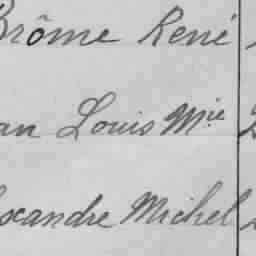 Brôme René
an Louis Mie
exandre Michel